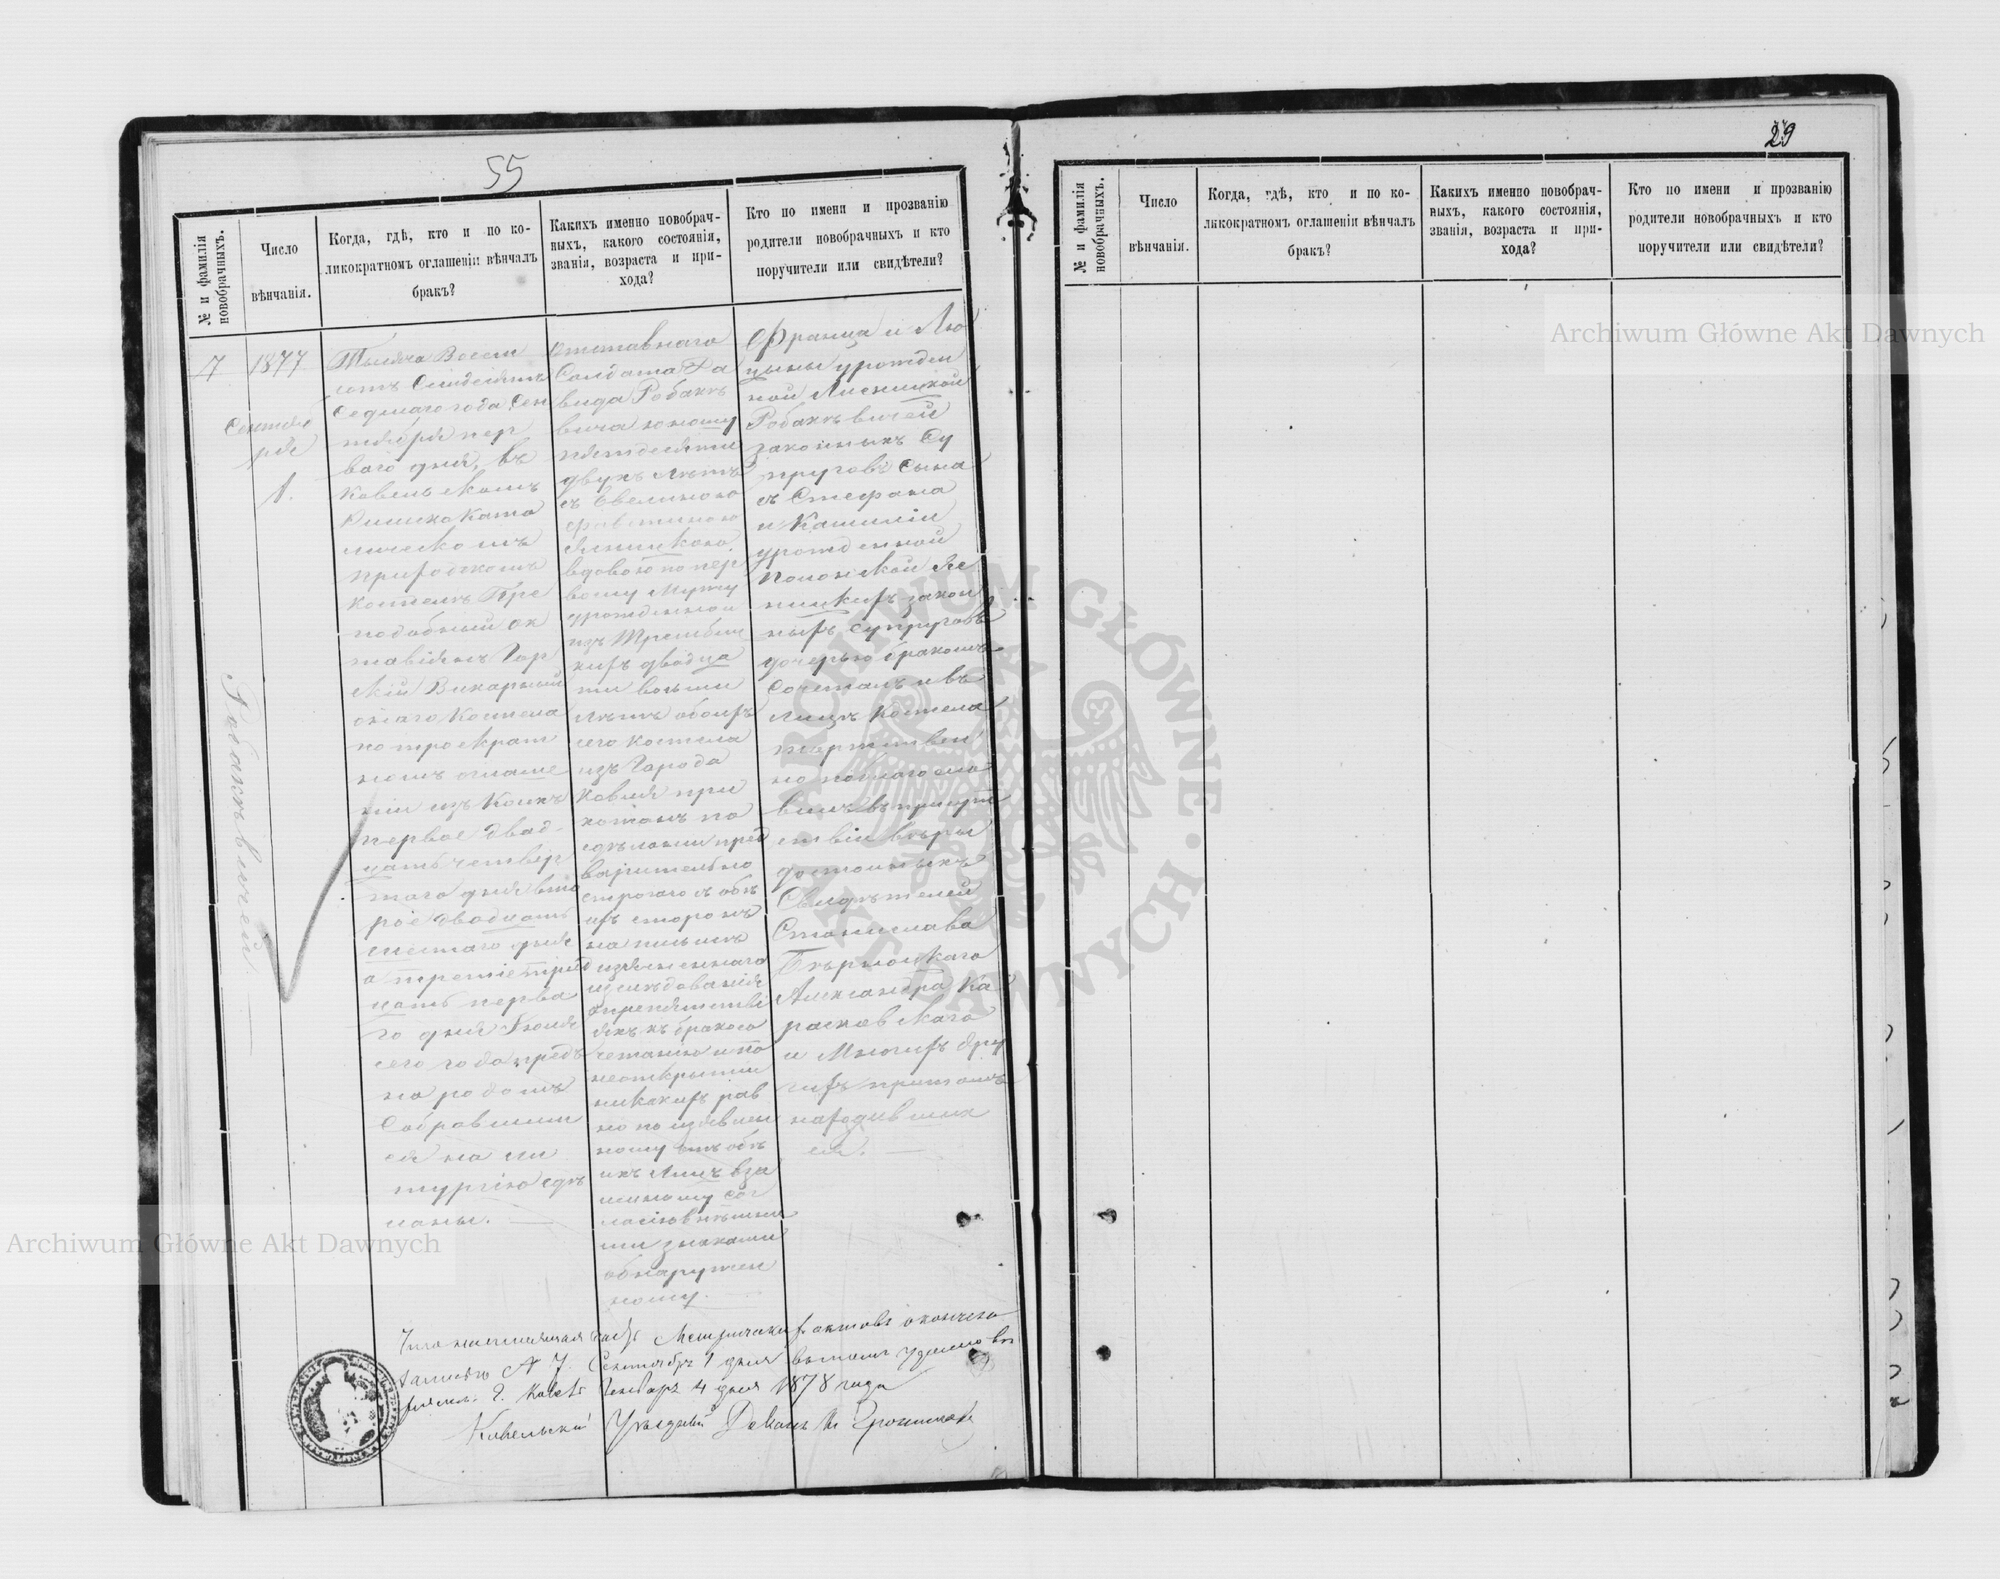 55
№ и фамилія новобрачныхъ.
Число вѣнчанія.
Когда, гдѣ, кто и по ко-
ликократномъ оглашеніи вѣнчалъ
бракъ?
Каких именно новобрач-
ныхъ, какого состоянія,
званія, возраста и при-
хода?
Кто по имени и прозванію
родители новобрачныхъ и кто
поручители или свидѣтели?
7
1877
Сентяб
ря
1.
Тысяча Восем
сотъ Семдесятъ
Седмаго года, Сен
тября пер
ваго дня, въ
Ковельскомъ
Римско Като
лическомъ
приходскомъ
костелѣ Пре
подобный Ок
тавіянъ Гор
скій Викарный
онаго Костела
по троекрат
номъ оглаше
ніи изъ коихъ
первое двад-
цать четвер
таго дня вто
рое двадцать
шестаго дня
а третіе трид
цать перва
го дня Іюля
сего года предъ
народомъ
Собравшим
ся на ли
тургію сдѣ
ланы.
Отставнаго
Солдата Да
вида Робакъ
вича юношу
пятдесяти
двухъ лѣтъ
съ Евелиною
вдовою по пер
вому Мужу
урожденною
изъ Трембиц
кихъ двадца
ти восьми
лѣтъ обоихъ
сего костела
изъ Города
Ковля при
хожанъ по
сдѣланіи пред
варительно
строгаго съ обѣ
ихъ сторонъ
на письмѣ
изъясненнаго
изслѣдованія
о препятстві
яхъ къ бракосо
четанію и по
неоткрытіи
никакихъ рав
но по изъявлен
ному отъ обѣ
ихъ лицъ вза
имному сог
ласію внѣшни
ми знаками
обнаружен
ному.
Франца и Лю
цыны урожден
ной Лисницкой
Робакъвичей
законныхъ Су
пруговъ сына
съ Стефана
и Камиліи
урожденной
закон
ныхъ Супруговъ
дочерью бракомъ
Сочеталъ и въ
Лицѣ Костела
торжествен
но поблагосло
вилъ въ присут
ствіи вѣры
достойныхъ
Свидѣтелей
Станислава
Александра Ка
расковскаго
и Многихъ дру
гихъ притомъ
находивших
ся.
Робакъвичей
Что настоящая часть Метрическихъ актовъ окончена
записью N 7. Сентября 1 дня въ томъ удостовѣ
ряемъ. Г. Ковель Генваря 4 дня 1878 года
Ковельскій Уѣздный Деканъ
29
№ и фамилія новобрачныхъ.
Число вѣнчанія.
Когда, гдѣ, кто и по ко-
ликократномъ оглашеніи вѣнчалъ
бракъ?
Каких именно новобрач-
ныхъ, какого состоянія,
званія, возраста и при-
хода?
Кто по имени и прозванію
родители новобрачныхъ и кто
поручители или свидѣтели?
Archiwum Główne Akt Dawnych
Archiwum Główne Akt Dawnych
ARCHIWUM GŁÓWNE · AKT DAWNYCH ·